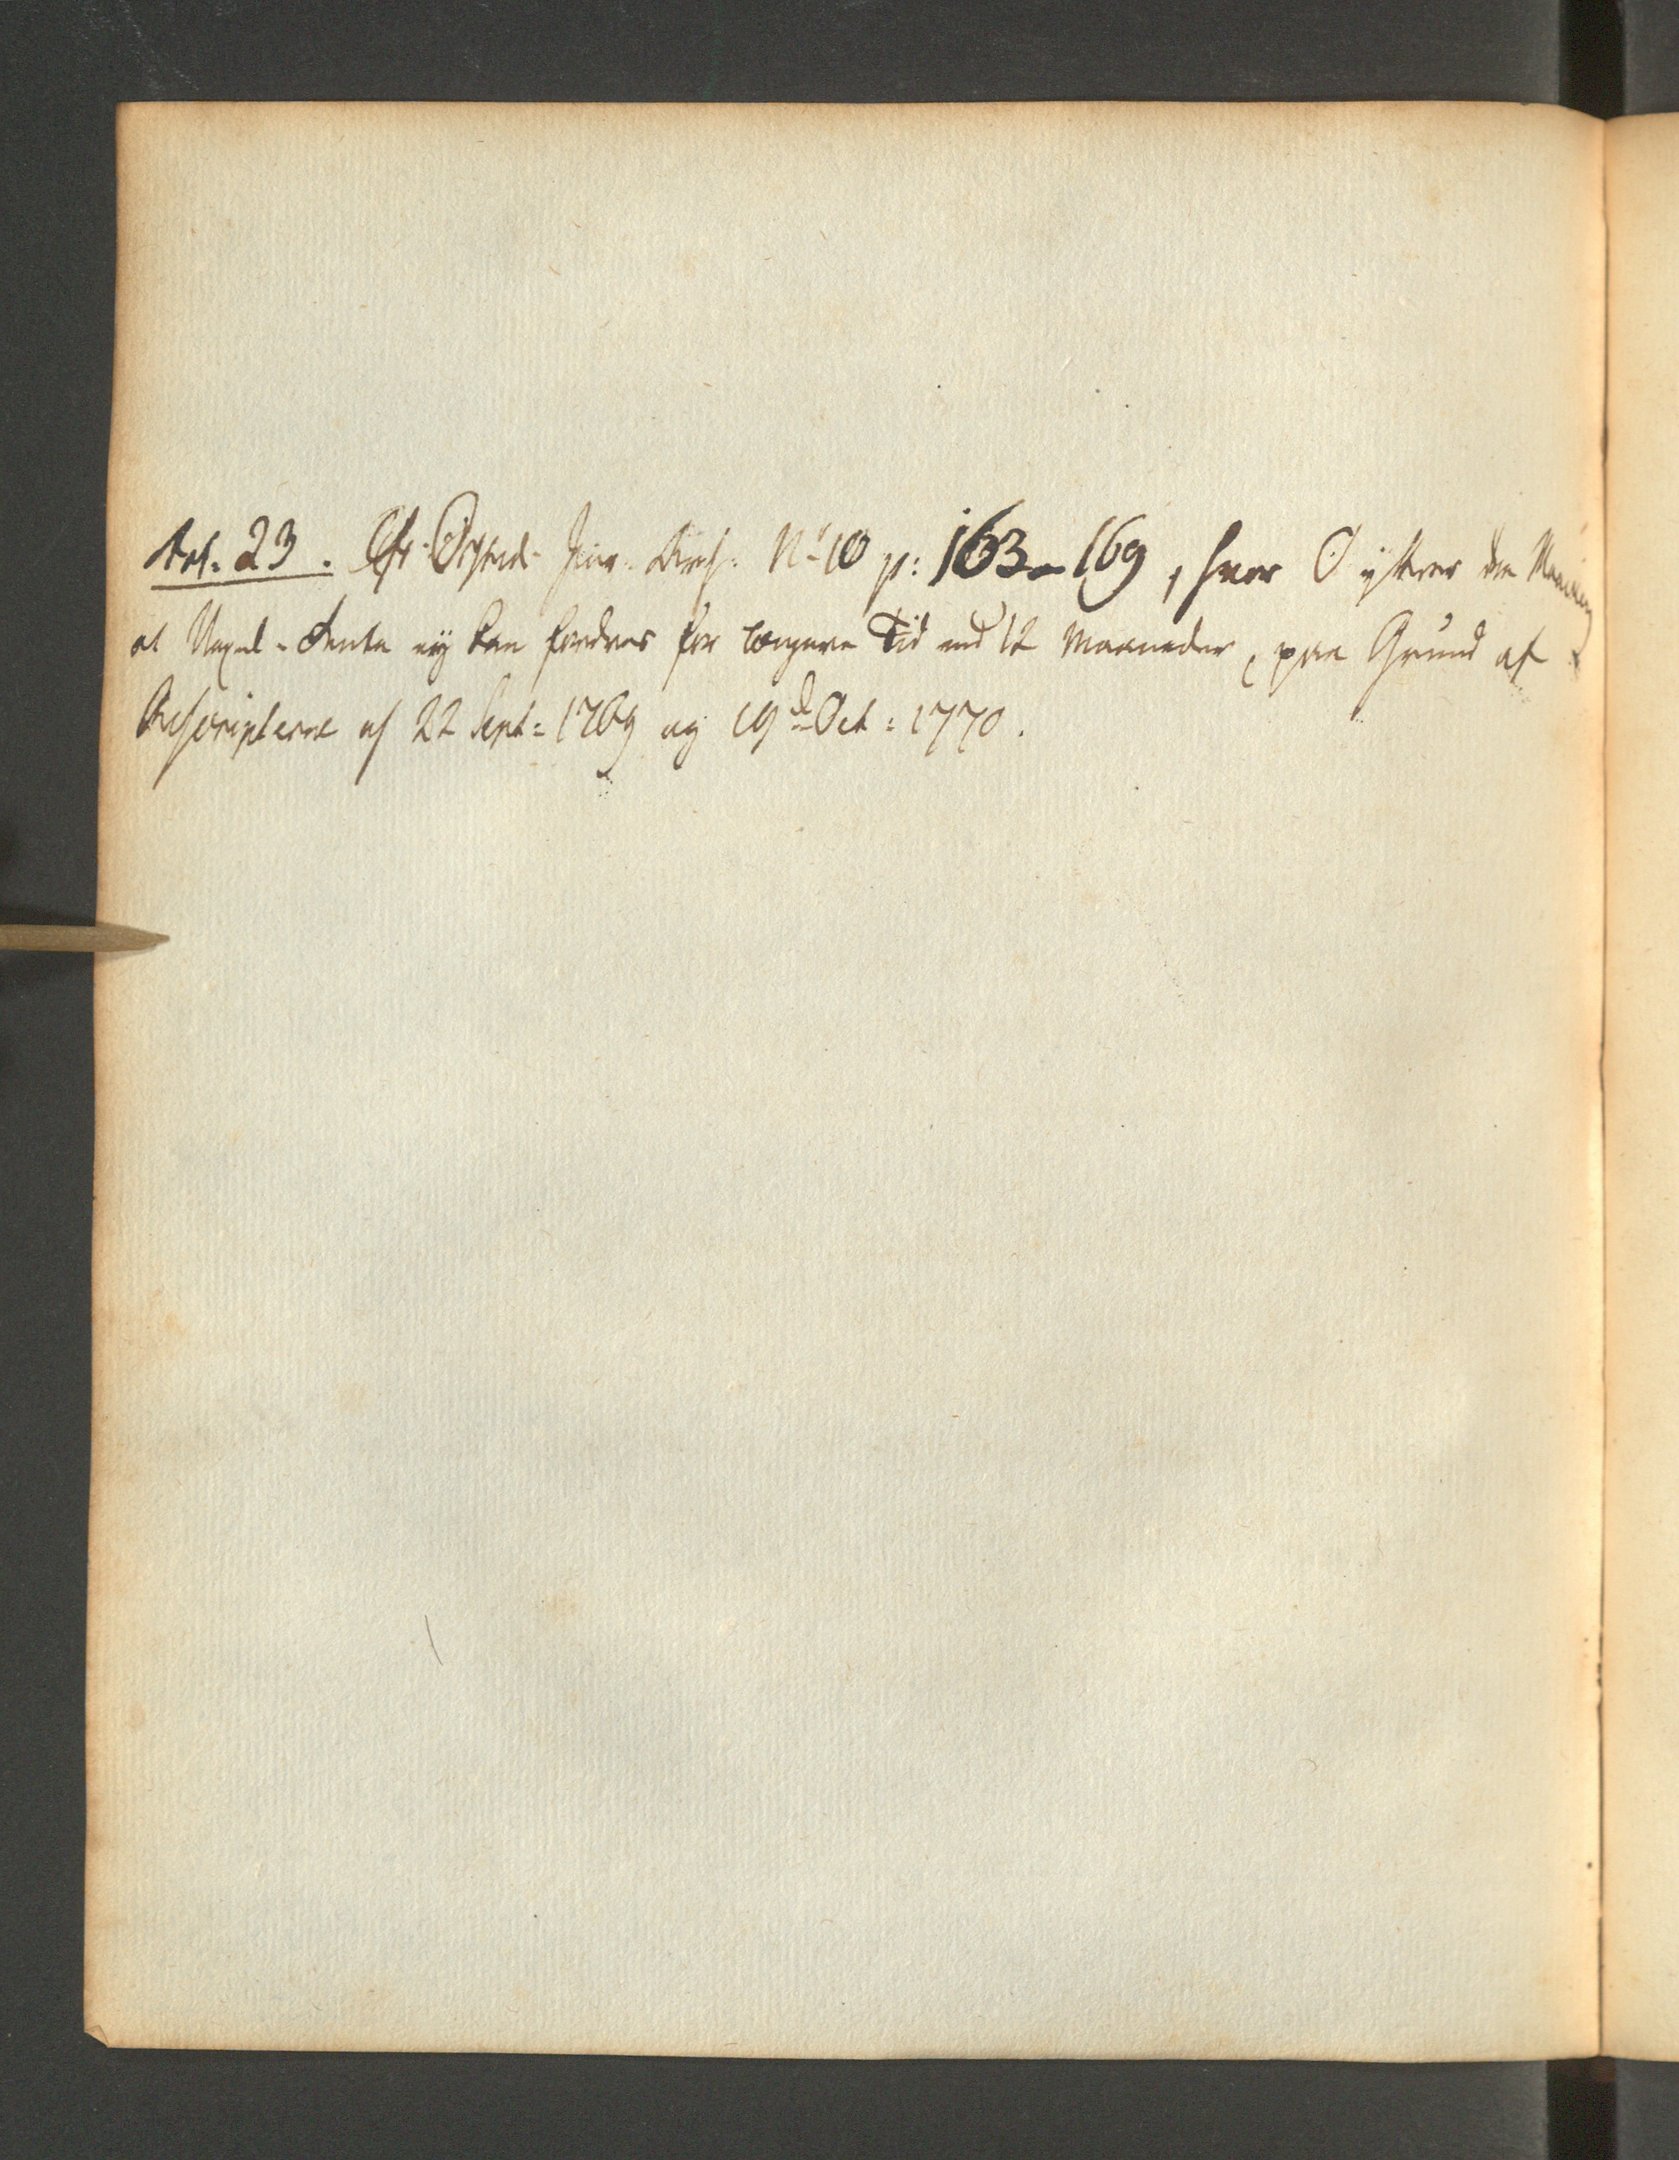 Art. 23. Cfr. Ørsted Jur. Arch. No 10 p: 163-169, hvor Ø yttrer den Mening
at Vexel-Rente ey kan fordres for længere Tid end 12 Maaneder, paa Grund af
Rescripterne af 22 Sept: 1769 og 19d Oct: 1770.